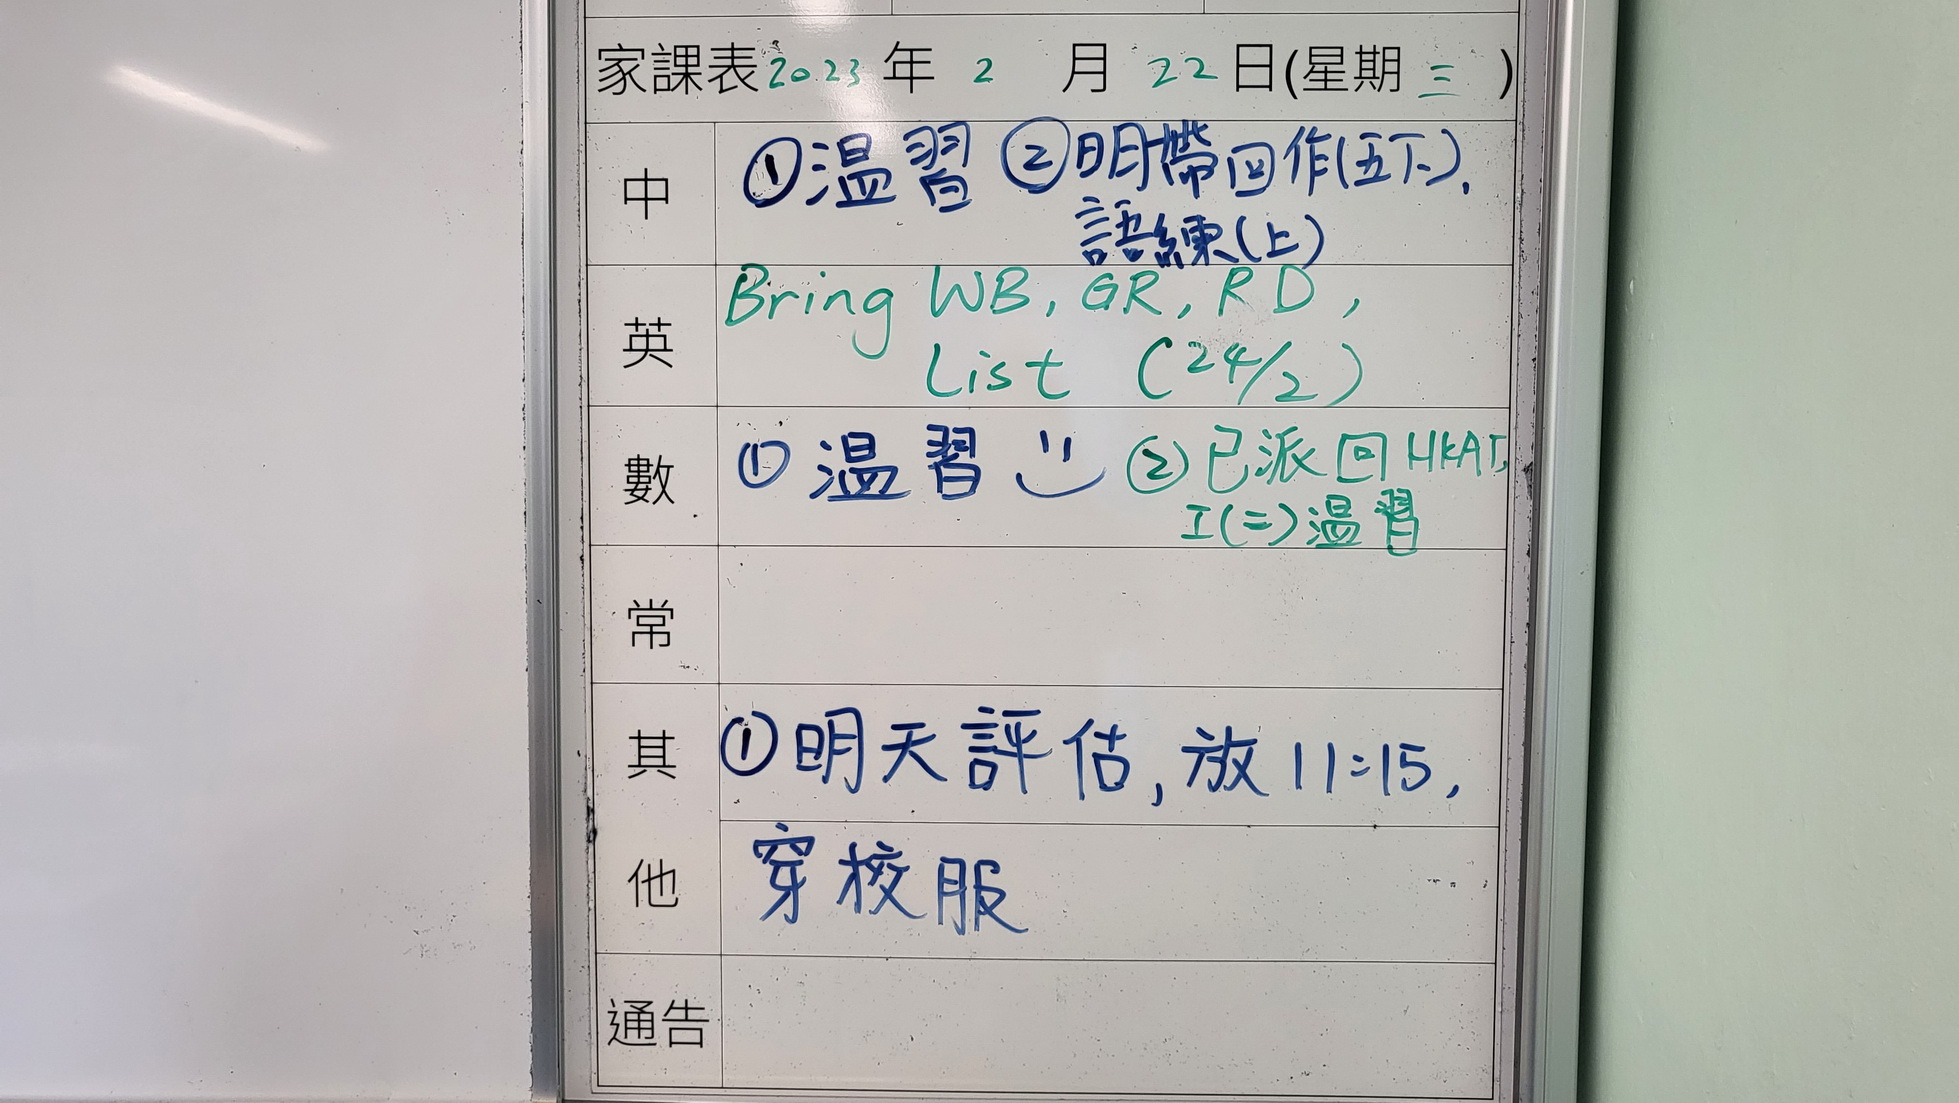 家課表 2023 年 2 月 22 日(星期 三 )
中 ①温習 ②明帶回作(五下),
語練(上)
英 Bring WB, GR, RD,
List (24/2)
數 ① 温習 ② 已派回 HKAT,
I(二)温習
常
其 ①明天評估, 放 11:15,
他 穿校服
通告